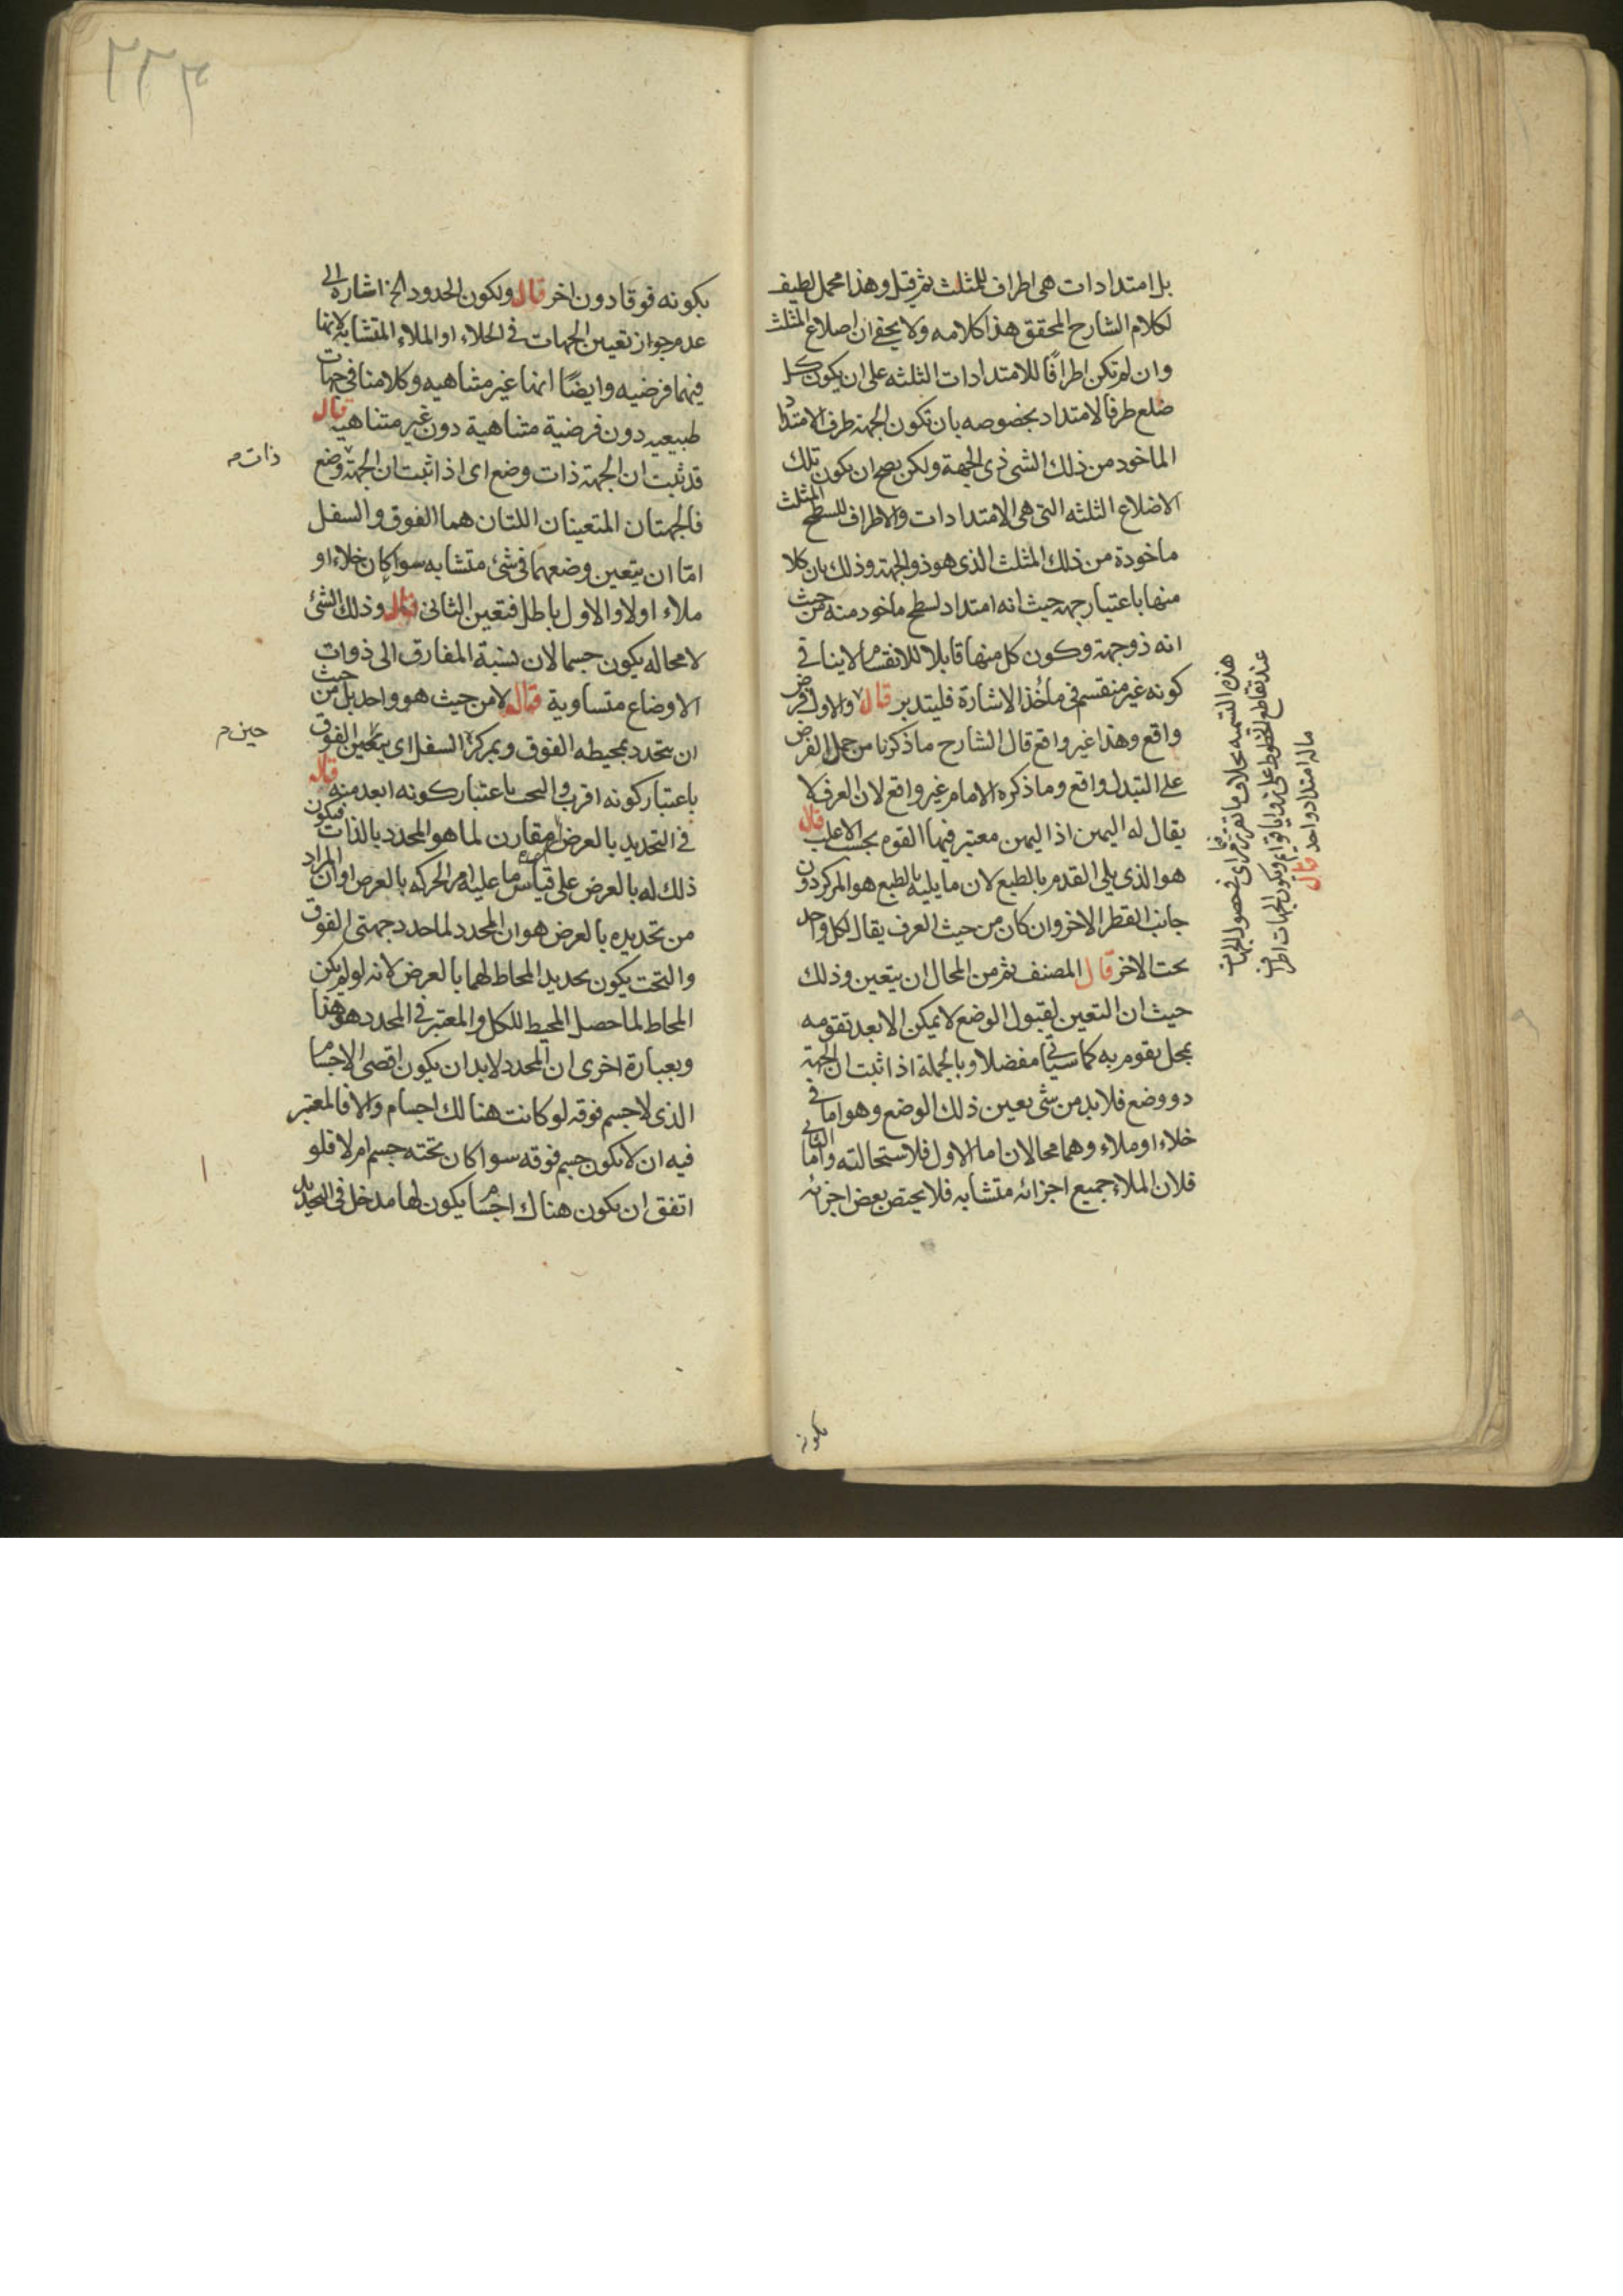 بل امتدادات هى اطراف للمثلث ثم قيل وهذا محمل لطيف
لكلام الشارح المحقق هذا كلامه ولا يخفى ان اضلاع المثلث
وان لم تكن اطرافًا للامتدادات الثلثه على ان يكون كل
ضلع طرفا لامتداد بخصوصه بان تكون الجهة طرف الامتداد
الماخود من ذلك الشى ذى الجهة ولكن يصح ان يكون تلك
الاضلاع الثلثه التى هى الامتدادات والاطراف للسطح المثلث
ماخودة من ذلك المثلث الذى هو ذو الجهة وذلك بان كلا
منها باعتبار جهه حيث انه امتداد لسطح ماخود منه من حيث
انه ذو جهة وكون كل منها قابلا للانقسام لا ينافى
كونه غير منقسم فى ماخذ الاشارة فليتدبر قال والاول فرض
واقع وهذا غير واقع قال الشارح ما ذكرنا من حمل الفرض
على التبدل واقع وما ذكره الامام غير واقع لان العرف لا
يقال له اليمين اذ اليمين معتبر فيها القوه بحسب الاغلب قال
هو الذى يلى القدم بالطبع لان ما يليه بالطبع هو المركز دون
جانب القطر الاخر وان كان من حيث العرف يقال لكل واحد
تحت الاخر قال المصنف ثم من المحال ان يتعين وذلك
حيث ان التعين لقبول الوضع لا يمكن الا بعد تقومه
بمحل يقوم به كما سياتى مفصلا وبالجملة اذا ثبت ان الجهة
ذو وضع فلا بد من شى يعين ذلك الوضع وهو اما فى
خلاء او ملاء وهما محالان اما الاول فلاستحالته واما الثانى
فلان الملاء جميع اجزائه متشابه فلا يختص بعض اجزائه
هذه التسميه بخلاف ما تقرر فى راى فى حصول الجهات
عند تقاطع الخطوط على زوايا قوائم ويكون الجهات اطراف
ماله امتداد واحد قال
بكونه
٢٢٤
بكونه فوقا دون اخر قال ولكون الحدود الخ اشارة الى
عدم جواز تعيين الجهات فى الخلاء او الملاء المتشابه لانها
فيهما فرضيه وايضًا انها غير متناهيه وكلامنا فى جهات
طبيعيه دون فرضية متناهية دون غير متناهيه قال
قد ثبت ان الجهة ذات وضع اى اذا ثبت ان الجهة وضع
ذات م
فالجهتان المتعينان اللتان هما الفوق والسفل
امّا ان يتعين وضعهما فى شئ متشابه سوا كان خلاء او
ملاء اولا والاول باطل فتعين الثانى قال وذلك الشئ
لا محاله يكون جسما لان نسبة المفارق الى ذوات
الاوضاع متساوية قال لا من حيث هو واحد بل من حيث
ان يتحدد بمحيطه الفوق وبمركزه السفل اى يتعين الفوق
حين م
باعتبار كونه اقرب والتحت باعتبار كونه ابعد منه قال
فى التحديد بالعرض مقارن لما هو المحدد بالذات فيكون
ذلك له بالعرض على قياس ما عليه امر الحركه بالعرض او ان المراد
من تحديده بالعرض هو ان المحدد لما حدد جهتى الفوق
والتحت يكون تحديد المحاط لهما بالعرض لانه لو لم يكن
المحاط لما حصل المحيط للكل والمعتبر فى المحدد هو هذا
وبعبارة اخرى ان المحدد لا بد ان يكون اقصى الاجسام
الذى لا جسم فوقه لو كانت هنالك اجسام والا فالمعتبر
فيه ان لا يكون جسم فوقه سوا كان تحته جسم ام لا فلو
اتفق ان يكون هناك اجسام يكون لها مدخل فى التحديد